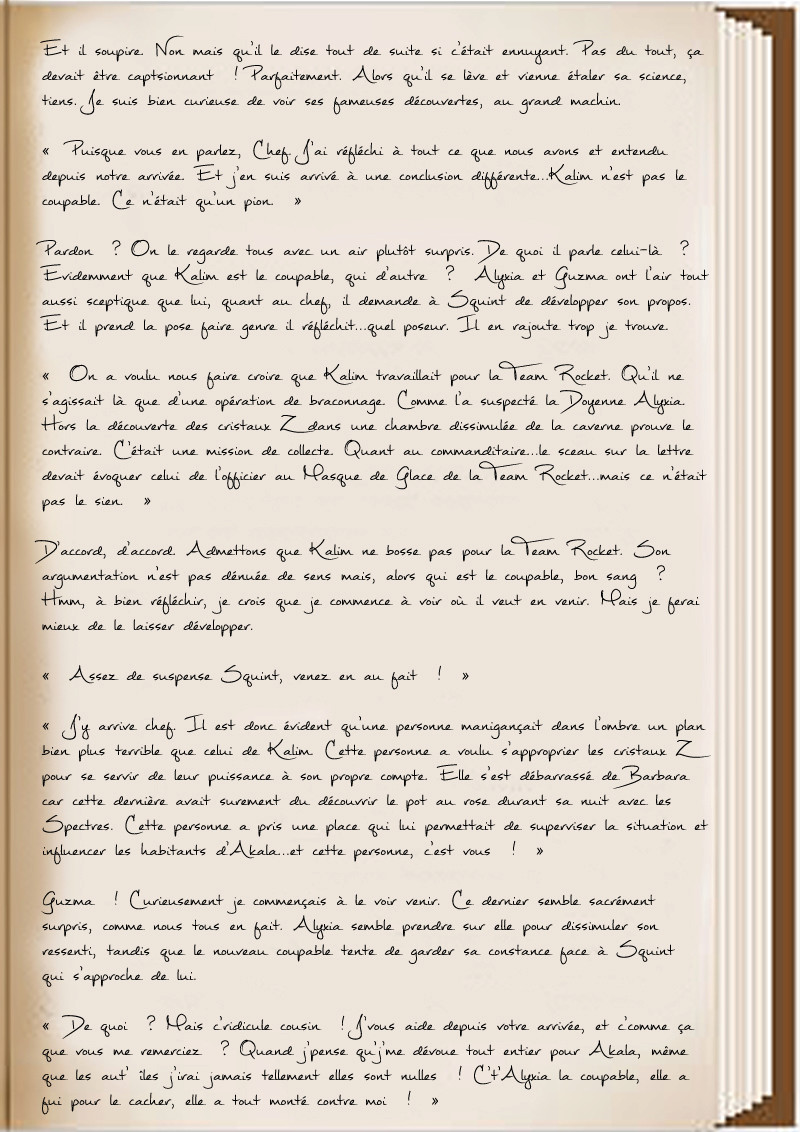 Et il soupire. Non mais qu'il le dise tout de suite si c'était ennuyant. Pas du tout, ça
devait être captsionnant ! Parfaitement. Alors qu'il se lève et vienne étaler sa science,
tiens. Je suis bien curieuse de voir ses fameuses découvertes, au grand machin.

« Puisque vous en parlez, Chef. J'ai réfléchi à tout ce que nous avons et entendu
depuis notre arrivée. Et j'en suis arrivé à une conclusion différente...Kalim n'est pas le
coupable. Ce n'était qu'un pion. »

Pardon ? On le regarde tous avec un air plutôt surpris. De quoi il parle celui-là ?
Evidemment que Kalim est le coupable, qui d'autre ? Alyxia et Guzma ont l'air tout
aussi sceptique que lui, quant au chef, il demande à Squint de développer son propos.
Et il prend la pose faire genre il réfléchit...quel poseur. Il en rajoute trop je trouve.

« On a voulu nous faire croire que Kalim travaillait pour la Team Rocket. Qu'il ne
s'agissait là que d'une opération de braconnage. Comme l'a suspecté la Doyenne Alyxia.
Hors la découverte des cristaux Z dans une chambre dissimulée de la caverne prouve le
contraire. C'était une mission de collecte. Quant au commanditaire...le sceau sur la lettre
devait évoquer celui de l'officier au Masque de Glace de la Team Rocket...mais ce n'était
pas le sien. »

D'accord, d'accord. Admettons que Kalim ne bosse pas pour la Team Rocket. Son
argumentation n'est pas dénuée de sens mais, alors qui est le coupable, bon sang ?
Hmm, à bien réfléchir, je crois que je commence à voir où il veut en venir. Mais je ferai
mieux de le laisser développer.

« Assez de suspense Squint, venez en au fait ! »

« J'y arrive chef. Il est donc évident qu'une personne manigançait dans l'ombre un plan
bien plus terrible que celui de Kalim. Cette personne a voulu s'approprier les cristaux Z
pour se servir de leur puissance à son propre compte. Elle s'est débarrassé de Barbara
car cette dernière avait surement du découvrir le pot au rose durant sa nuit avec les
Spectres. Cette personne a pris une place qui lui permettait de superviser la situation et
influencer les habitants d'Akala...et cette personne, c'est vous ! »

Guzma ! Curieusement je commençais à le voir venir. Ce dernier semble sacrément
surpris, comme nous tous en fait. Alyxia semble prendre sur elle pour dissimuler son
ressenti, tandis que le nouveau coupable tente de garder sa constance face à Squint
qui s'approche de lui.

« De quoi ? Mais c'ridicule cousin ! J'vous aide depuis votre arrivée, et c'comme ça
que vous me remerciez ? Quand j'pense qu'j'me dévoue tout entier pour Akala, même
que les aut' îles j'irai jamais tellement elles sont nulles ! C't'Alyxia la coupable, elle a
fui pour le cacher, elle a tout monté contre moi ! »